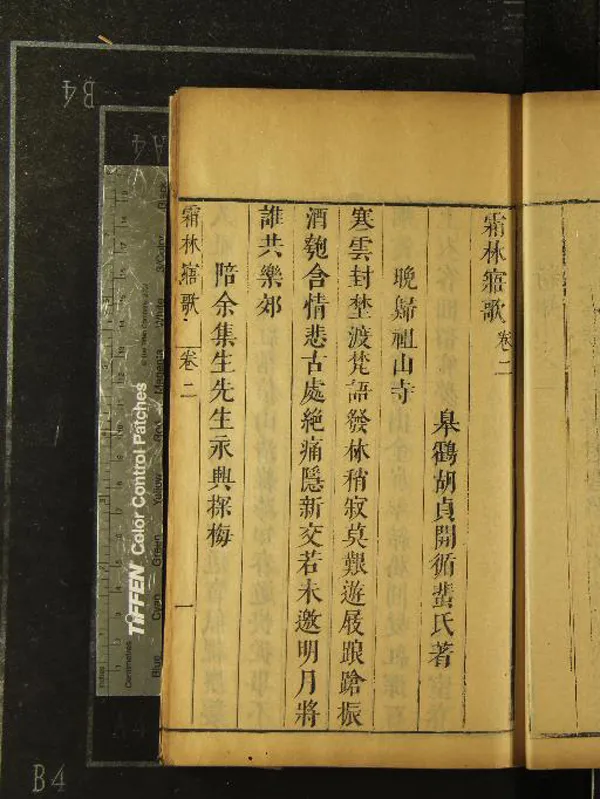 霜林寤歌 卷二
皋鸖胡貞開循蜚氏著
晚歸祖山寺
寒雲封埜渡梵語發林稍寂莫艱遊屐踉蹌振
酒匏含情悲古處絶痛隱新交若未邀明月將
誰共樂郊
陪余集生先生永興探梅
霜林寤歌 卷二 一
B4
A4
TIFFEN Color Control Patches
Blue
Cyan
Green
Yellow
B4